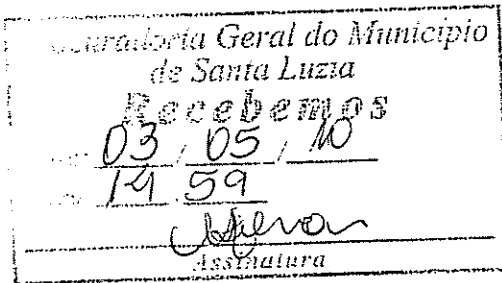 Procuradoria Geral do Município
de Santa Luzia
Recebemos
03 / 05 / 10
14 59
Assinatura